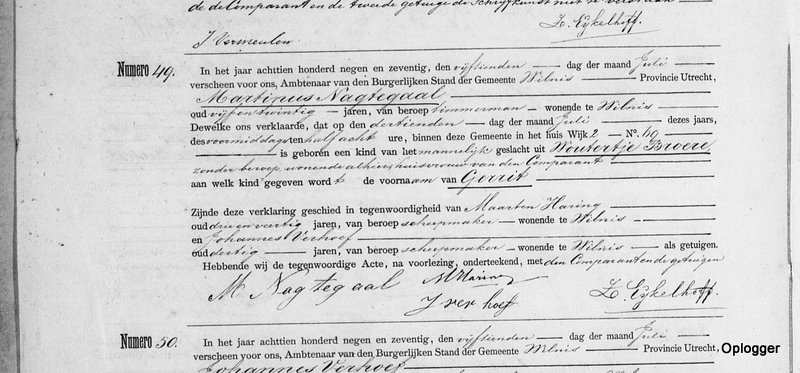 de Comparant en de tweede getuige de Schrijfkunst niet te verstaan
J Vermeulen
L. Eykelhoff.
Numero 49. In het jaar achttien honderd negen en zeventig, den vijftienden dag der maand Juli
verscheen voor ons, Ambtenaar van den Burgerlijken Stand der Gemeente Wilnis Provincie Utrecht,
Martinus Nagtegaal
oud vijfentwintig jaren, van beroep timmerman wonende te Wilnis
Dewelke ons verklaarde, dat op den dertienden dag der maand Juli dezes jaars,
des voormiddags ten half acht ure, binnen deze Gemeente in het huis Wijk 2 No. 49
is geboren een kind van het mannelijk geslacht uit Woutertje Broere
zonder beroep, wonende alhier, huisvrouw van den Comparant
aan welk kind gegeven wordt de voornaam van Gerrit
Zijnde deze verklaring geschied in tegenwoordigheid van Maarten Haring
oud drie en veertig jaren, van beroep scheepmaker wonende te Wilnis
en Johannes Verhoef
oud dertig jaren, van beroep scheepmaker wonende te Wilnis als getuigen.
Hebbende wij de tegenwoordige Acte, na voorlezing, onderteekend, met den Comparant en de getuigen
M Nagtegaal M Haring
J verhoef L. Eykelhoff.
Numero 50. In het jaar achttien honderd negen en zeventig, den vijftienden dag der maand Juli
verscheen voor ons, Ambtenaar van den Burgerlijken Stand der Gemeente Wilnis Provincie Utrecht,
Johannes Verhoef
Oplogger